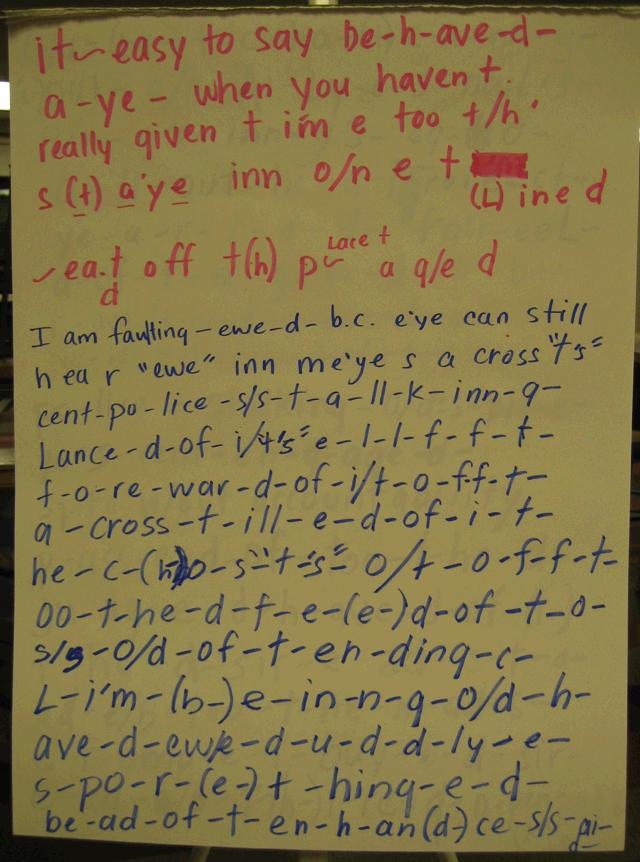 it~easy to say be-h-ave-d-
a-ye- when you haven t.
really given t im e too t/h'
s (t) a'ye inn o/n e t
(L) ine d
lace t
~ea.t off t(h) p~ a q/e d
d
I am faulting-ewe-d-b.c. e'ye can still
h ea r "ewe" inn me'ye s a cross "t's"
cent-po-lice-s/s-t-a-ll-k-inn-g-
Lance-d-of-i/t's"e-l-l-f-f-t-
f-o-re-war-d-of-i/t-o-f.f-t-
a-cross-t-ill-e-d-of-i-t-
he-c-(h)o-s"-t-s" o/t-o-f-f-t-
oo-t-he-d-f-e-(e-)d-of-t-o-
s/s-o/d-of-t-en-ding-c-
L-i'm-(b-)e-in-n-g-o/d-h-
ave-d-ew/e-d-u-d-d-ly-e-
s-po-r-(e-)t-hing-e-d-
be-ad-of-t-en-h-an(d-)ce-s/s-pi-